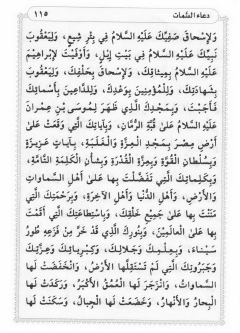 دعاء السّمات
١١٥
وَلِإِسْحاقَ صَفِيِّكَ عَلَيْهِ السَّلامُ في بِئْرِ شِيَعٍ، وَلِيَعْقُوبَ
نَبِيِّكَ عَلَيْهِ السَّلامُ في بَيْتِ إيلٍ، وَأَوْفَيْتَ لِإِبْراهِيمَ
عَلَيْهِ السَّلامُ بِميثاقِكَ، وَلِإِسْحاقَ بِحَلْفِكَ، وَلِيَعْقُوبَ
بِشَهادَتِكَ، وَلِلْمُؤْمِنِينَ بِوَعْدِكَ، وَلِلدّاعِينَ بِأَسْمائِكَ
فَأَجَبْتَ، وَبِمَجْدِكَ الَّذي ظَهَرَ لِمُوسَى بْنِ عِمْرانَ
عَلَيْهِ السَّلامُ عَلى قُبَّةِ الرُّمّانِ، وَبِآياتِكَ الَّتي وَقَعَتْ عَلى
أَرْضِ مِصْرَ بِمَجْدِ الْعِزَّةِ وَالْغَلَبَةِ، بِآياتٍ عَزيزَةٍ
وَبِسُلْطانِ الْقُوَّةِ وَبِعِزَّةِ الْقُدْرَةِ وَبِشَأْنِ الْكَلِمَةِ التّامَّةِ،
وَبِكَلِماتِكَ الَّتي تَفَضَّلْتَ بِها عَلى أَهْلِ السَّماواتِ
وَالْأَرْضِ، وَأَهْلِ الدُّنْيا وَأَهْلِ الْآخِرَةِ، وَبِرَحْمَتِكَ الَّتي
مَنَنْتَ بِها عَلى جَميعِ خَلْقِكَ، وَبِاسْتِطاعَتِكَ الَّتي أَقَمْتَ
بِها عَلَى الْعالَمينَ، وَبِنُورِكَ الَّذي قَدْ خَرَّ مِنْ فَزَعِهِ طُورُ
سَيْناءَ، وَبِعِلْمِكَ وَجَلالِكَ، وَكِبْرِيائِكَ وَعِزَّتِكَ
وَجَبَرُوتِكَ الَّتي لَمْ تَسْتَقِلَّهَا الْأَرْضُ، وَانْخَفَضَتْ لَهَا
السَّماواتُ، وَانْزَجَرَ لَهَا الْعُمْقُ الْأَكْبَرُ، وَرَكَدَتْ لَهَا
الْبِحارُ وَالْأَنْهارُ، وَخَضَعَتْ لَهَا الْجِبالُ، وَسَكَنَتْ لَهَا